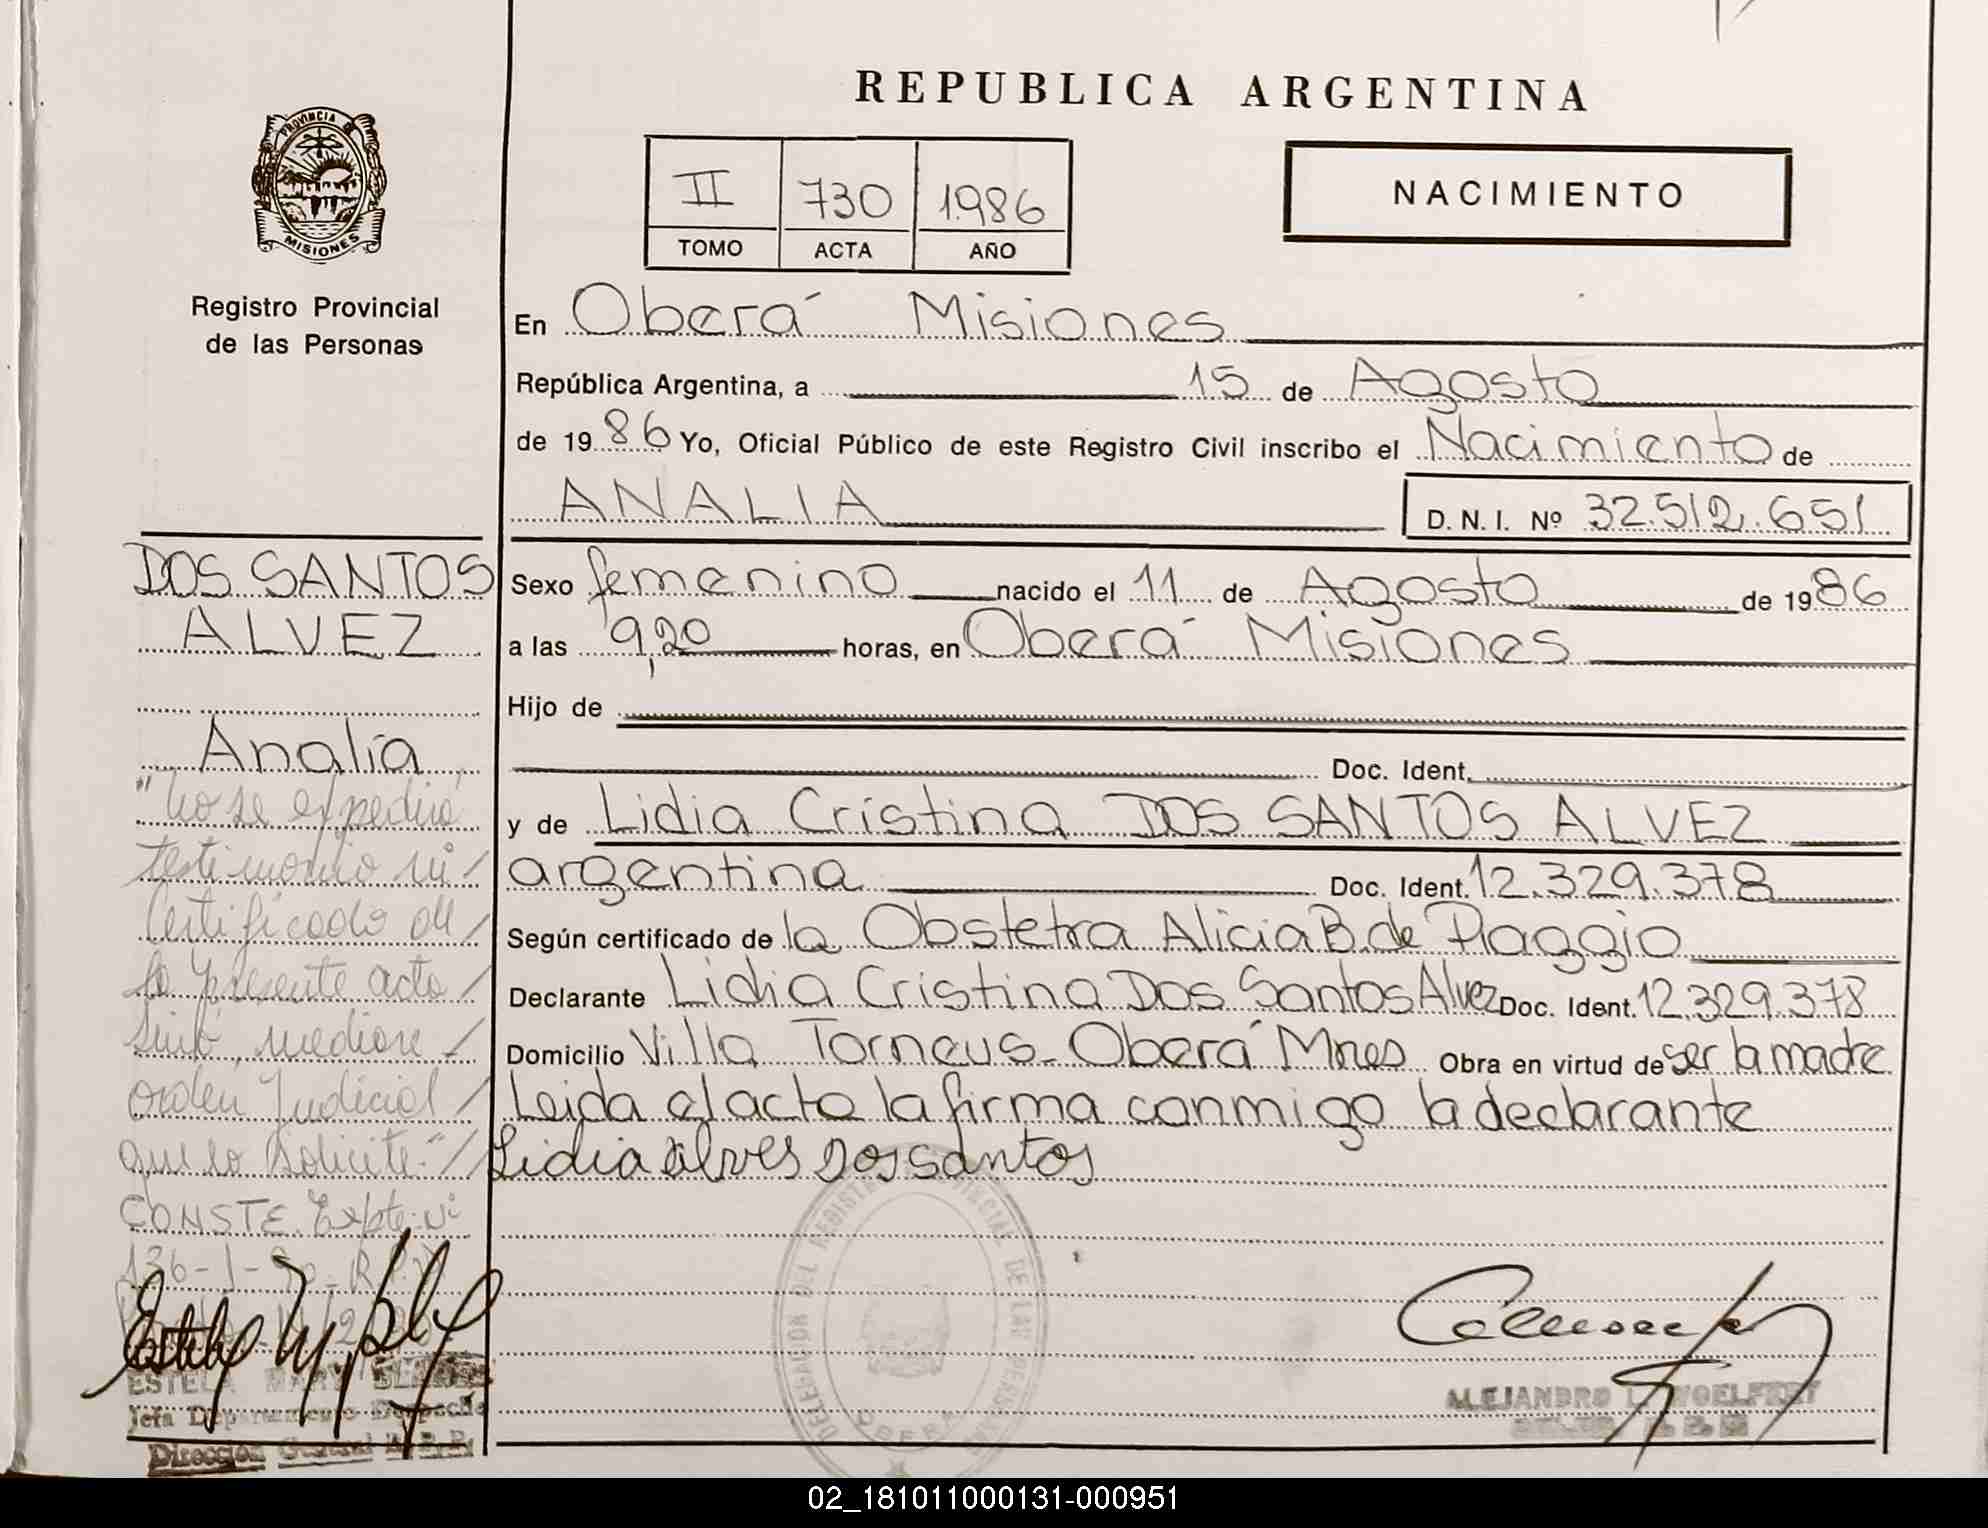 REPUBLICA ARGENTINA
PROVINCIA DE
MISIONES
Registro Provincial
de las Personas
II 730 1986
TOMO ACTA AÑO
NACIMIENTO
En Oberá Misiones
República Argentina, a 15 de Agosto
de 1986 Yo, Oficial Público de este Registro Civil inscribo el Nacimiento de
ANALIA D. N. I. Nº 32.512.651
Sexo femenino nacido el 11 de Agosto de 1986
a las 9,20 horas, en Oberá Misiones
Hijo de
Doc. Ident.
y de Lidia Cristina DOS SANTOS ALVEZ
argentina Doc. Ident. 12.329.378
Según certificado de la Obstetra Alicia B. de Piaggio
Declarante Lidia Cristina Dos Santos Alvez Doc. Ident. 12.329.378
Domicilio Villa Torneus - Oberá Mnes Obra en virtud de ser la madre
Leida el acta la firma conmigo la declarante
Lidia alves Dos santos
DOS SANTOS
ALVEZ
Analía
"No se expedirá
testimonio ni /
Certificado de /
la presente acta /
sino, mediare -
orden Judicial /
que lo solicite." //
CONSTE. Expte. Nº
ESTELA
Jefa Departamento Despacho
Dirección General
DELEGACION DEL REGISTRO PROVINCIAL DE LAS PERSONAS
OBERA
ALEJANDRO
02_181011000131-000951